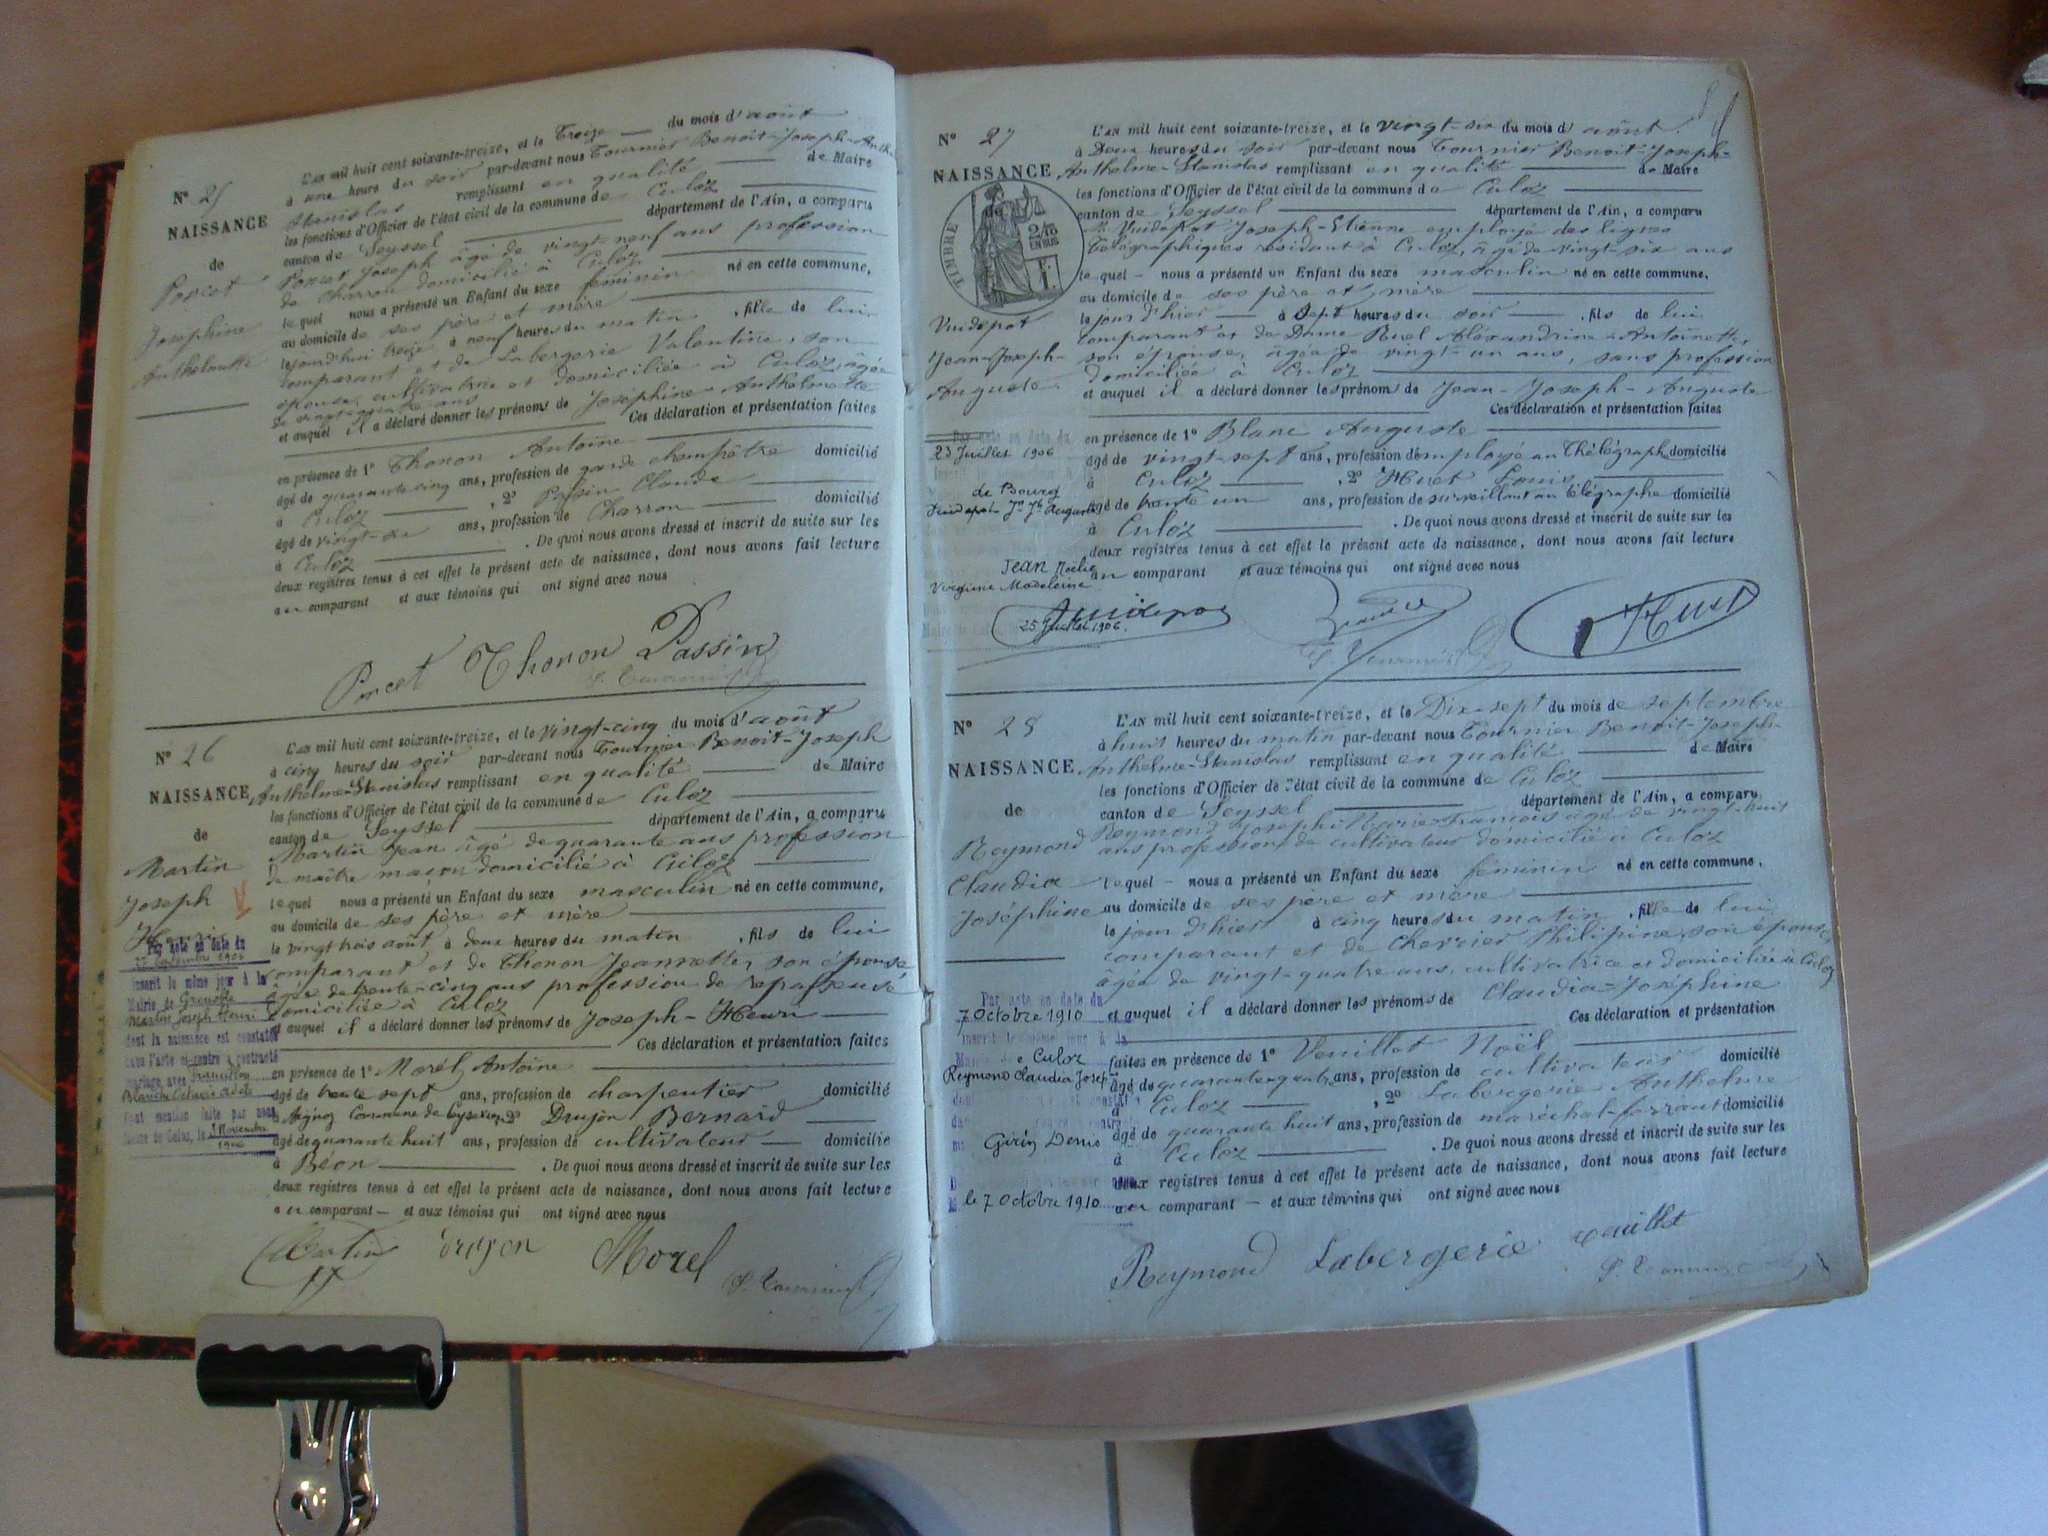 N° 25
NAISSANCE
de
Poncet
Joséphine
Anthelmette
L'AN mil huit cent soixante-treize, et le Treize du mois d'août
à une heure du soir par-devant nous Tournier Benoit-Joseph-Anthelme
Stanislas remplissant en qualité de Maire
les fonctions d'Officier de l'état civil de la commune de Culoz
canton de Seyssel département de l'Ain, a comparu
Poncet Joseph âgé de vingt-neuf ans profession
de Charron domicilié à Culoz
lequel nous a présenté un Enfant du sexe féminin né en cette commune,
au domicile de ses père et mère
lejourd'hui treize à neuf heures du matin, fille de lui
comparant et de Labergerie Valentine, son
épouse, cultivatrice et domiciliée à Culoz, âgée
de vingt-quatre ans
et auquel il a déclaré donner les prénoms de Joséphine-Anthelmette
Ces déclaration et présentation faites
en présence de 1° Thonon Antoine domicilié
âgé de quarante cinq ans, profession de garde champêtre
à Culoz, 2° Passin Claude domicilié
âgé de vingt-six ans, profession de Charron
à Culoz. De quoi nous avons dressé et inscrit de suite sur les
deux registres tenus à cet effet le présent acte de naissance, dont nous avons fait lecture
au comparant et aux témoins qui ont signé avec nous
Poncet Thonon Passin
N° 26
NAISSANCE
de
Martin
Joseph
Henri
L'AN mil huit cent soixante-treize, et le vingt-cinq du mois d'août
à cinq heures du soir par-devant nous Tournier Benoit-Joseph
Anthelme-Stanislas remplissant en qualité de Maire
les fonctions d'Officier de l'état civil de la commune de Culoz
canton de Seyssel département de l'Ain, a comparu
Martin Jean âgé de quarante ans profession
de maître maçon domicilié à Culoz
lequel nous a présenté un Enfant du sexe masculin né en cette commune,
au domicile de ses père et mère
le vingt trois août à deux heures du matin, fils de lui
comparant et de Thonon Jeannette, son épouse
âgée de trente-cinq ans profession de repasseuse
domiciliée à Culoz
et auquel il a déclaré donner les prénoms de Joseph-Henri
Ces déclaration et présentation faites
en présence de 1° Morel Antoine
âgé de trente sept ans, profession de charpentier domicilié
à Aignoz Commune de Ceyzérieu, 2° Drujon Bernard
âgé de quarante huit ans, profession de cultivateur domicilié
à Béon. De quoi nous avons dressé et inscrit de suite sur les
deux registres tenus à cet effet le présent acte de naissance, dont nous avons fait lecture
au comparant et aux témoins qui ont signé avec nous
Par acte en date du
inscrit le même jour à la
Mairie de Grenoble
Martin Joseph Henri
dont la naissance est constatée
dans l'acte ci-contre a contracté
mariage avec
Blanche
dont mention faite par nous
Maire de Culoz, le Novembre
Martin Drujon Morel
N° 27
NAISSANCE
de
TIMBRE
2/10
EN SUS
Vuidepot
Jean-Joseph-
Auguste
L'AN mil huit cent soixante-treize, et le vingt-six du mois d'août
à Deux heures du soir par-devant nous Tournier Benoit-Joseph-
Anthelme-Stanislas remplissant en qualité de Maire
les fonctions d'Officier de l'état civil de la commune de Culoz
canton de Seyssel département de l'Ain, a comparu
Sr Vuidepot Joseph-Etienne employé des lignes
Télégraphiques résidant à Culoz, âgé de vingt-six ans
lequel nous a présenté un Enfant du sexe masculin né en cette commune,
au domicile de ses père et mère
le jour d'hier à sept heures du soir, fils de lui
comparant et de Dame Ruel Aléxandrine-Antoinette,
son épouse, âgée de vingt-un ans, sans profession
domiciliée à Culoz
et auquel il a déclaré donner les prénoms de Jean-Joseph-Auguste
Ces déclaration et présentation faites
en présence de 1° Blanc Auguste
âgé de vingt-sept ans, profession d'employé au Thélégraphe domicilié
à Culoz, 2° Huet Louis
âgé de trente un ans, profession de surveillant au télégraphe domicilié
à Culoz. De quoi nous avons dressé et inscrit de suite sur les
deux registres tenus à cet effet le présent acte de naissance, dont nous avons fait lecture
au comparant et aux témoins qui ont signé avec nous
Par acte en date du
23 Juillet 1906
de Bourg
Vuidepot Jn Jh Auguste
Jean Noélie
Virginie Madeleine
25 Juillet 1906.
Vuidepot Huet
N° 28
NAISSANCE
de
Reymond
Claudia
Joséphine
L'AN mil huit cent soixante-treize, et le Dix-sept du mois de septembre
à huit heures du matin par-devant nous Tournier Benoit-Joseph-
Anthelme-Stanislas remplissant en qualité de Maire
les fonctions d'Officier de l'état civil de la commune de Culoz
canton de Seyssel département de l'Ain, a comparu
Reymond Joseph Marie-François âgé de vingt-huit
ans profession de cultivateur domicilié à Culoz
lequel nous a présenté un Enfant du sexe féminin né en cette commune,
au domicile de ses père et mère
le jour d'hier à cinq heures du matin, fille de lui
comparant et de Chervier Philipine, son épouse,
âgée de vingt-quatre ans, cultivatrice et domiciliée à Culoz
et auquel il a déclaré donner les prénoms de Claudia-Joséphine
Ces déclaration et présentation
faites en présence de 1° Vuillet Noël
âgé de quarante-quatre ans, profession de cultivateur domicilié
à Culoz, 2° Labergerie Anthelme
âgé de quarante huit ans, profession de maréchal-ferrant domicilié
à Culoz. De quoi nous avons dressé et inscrit de suite sur les
deux registres tenus à cet effet le présent acte de naissance, dont nous avons fait lecture
au comparant et aux témoins qui ont signé avec nous
Par acte en date du
7 Octobre 1910
de Culoz
Reymond Claudia Josép
Girin Denis
le 7 Octobre 1910
Reymond Labergerie Vuillet